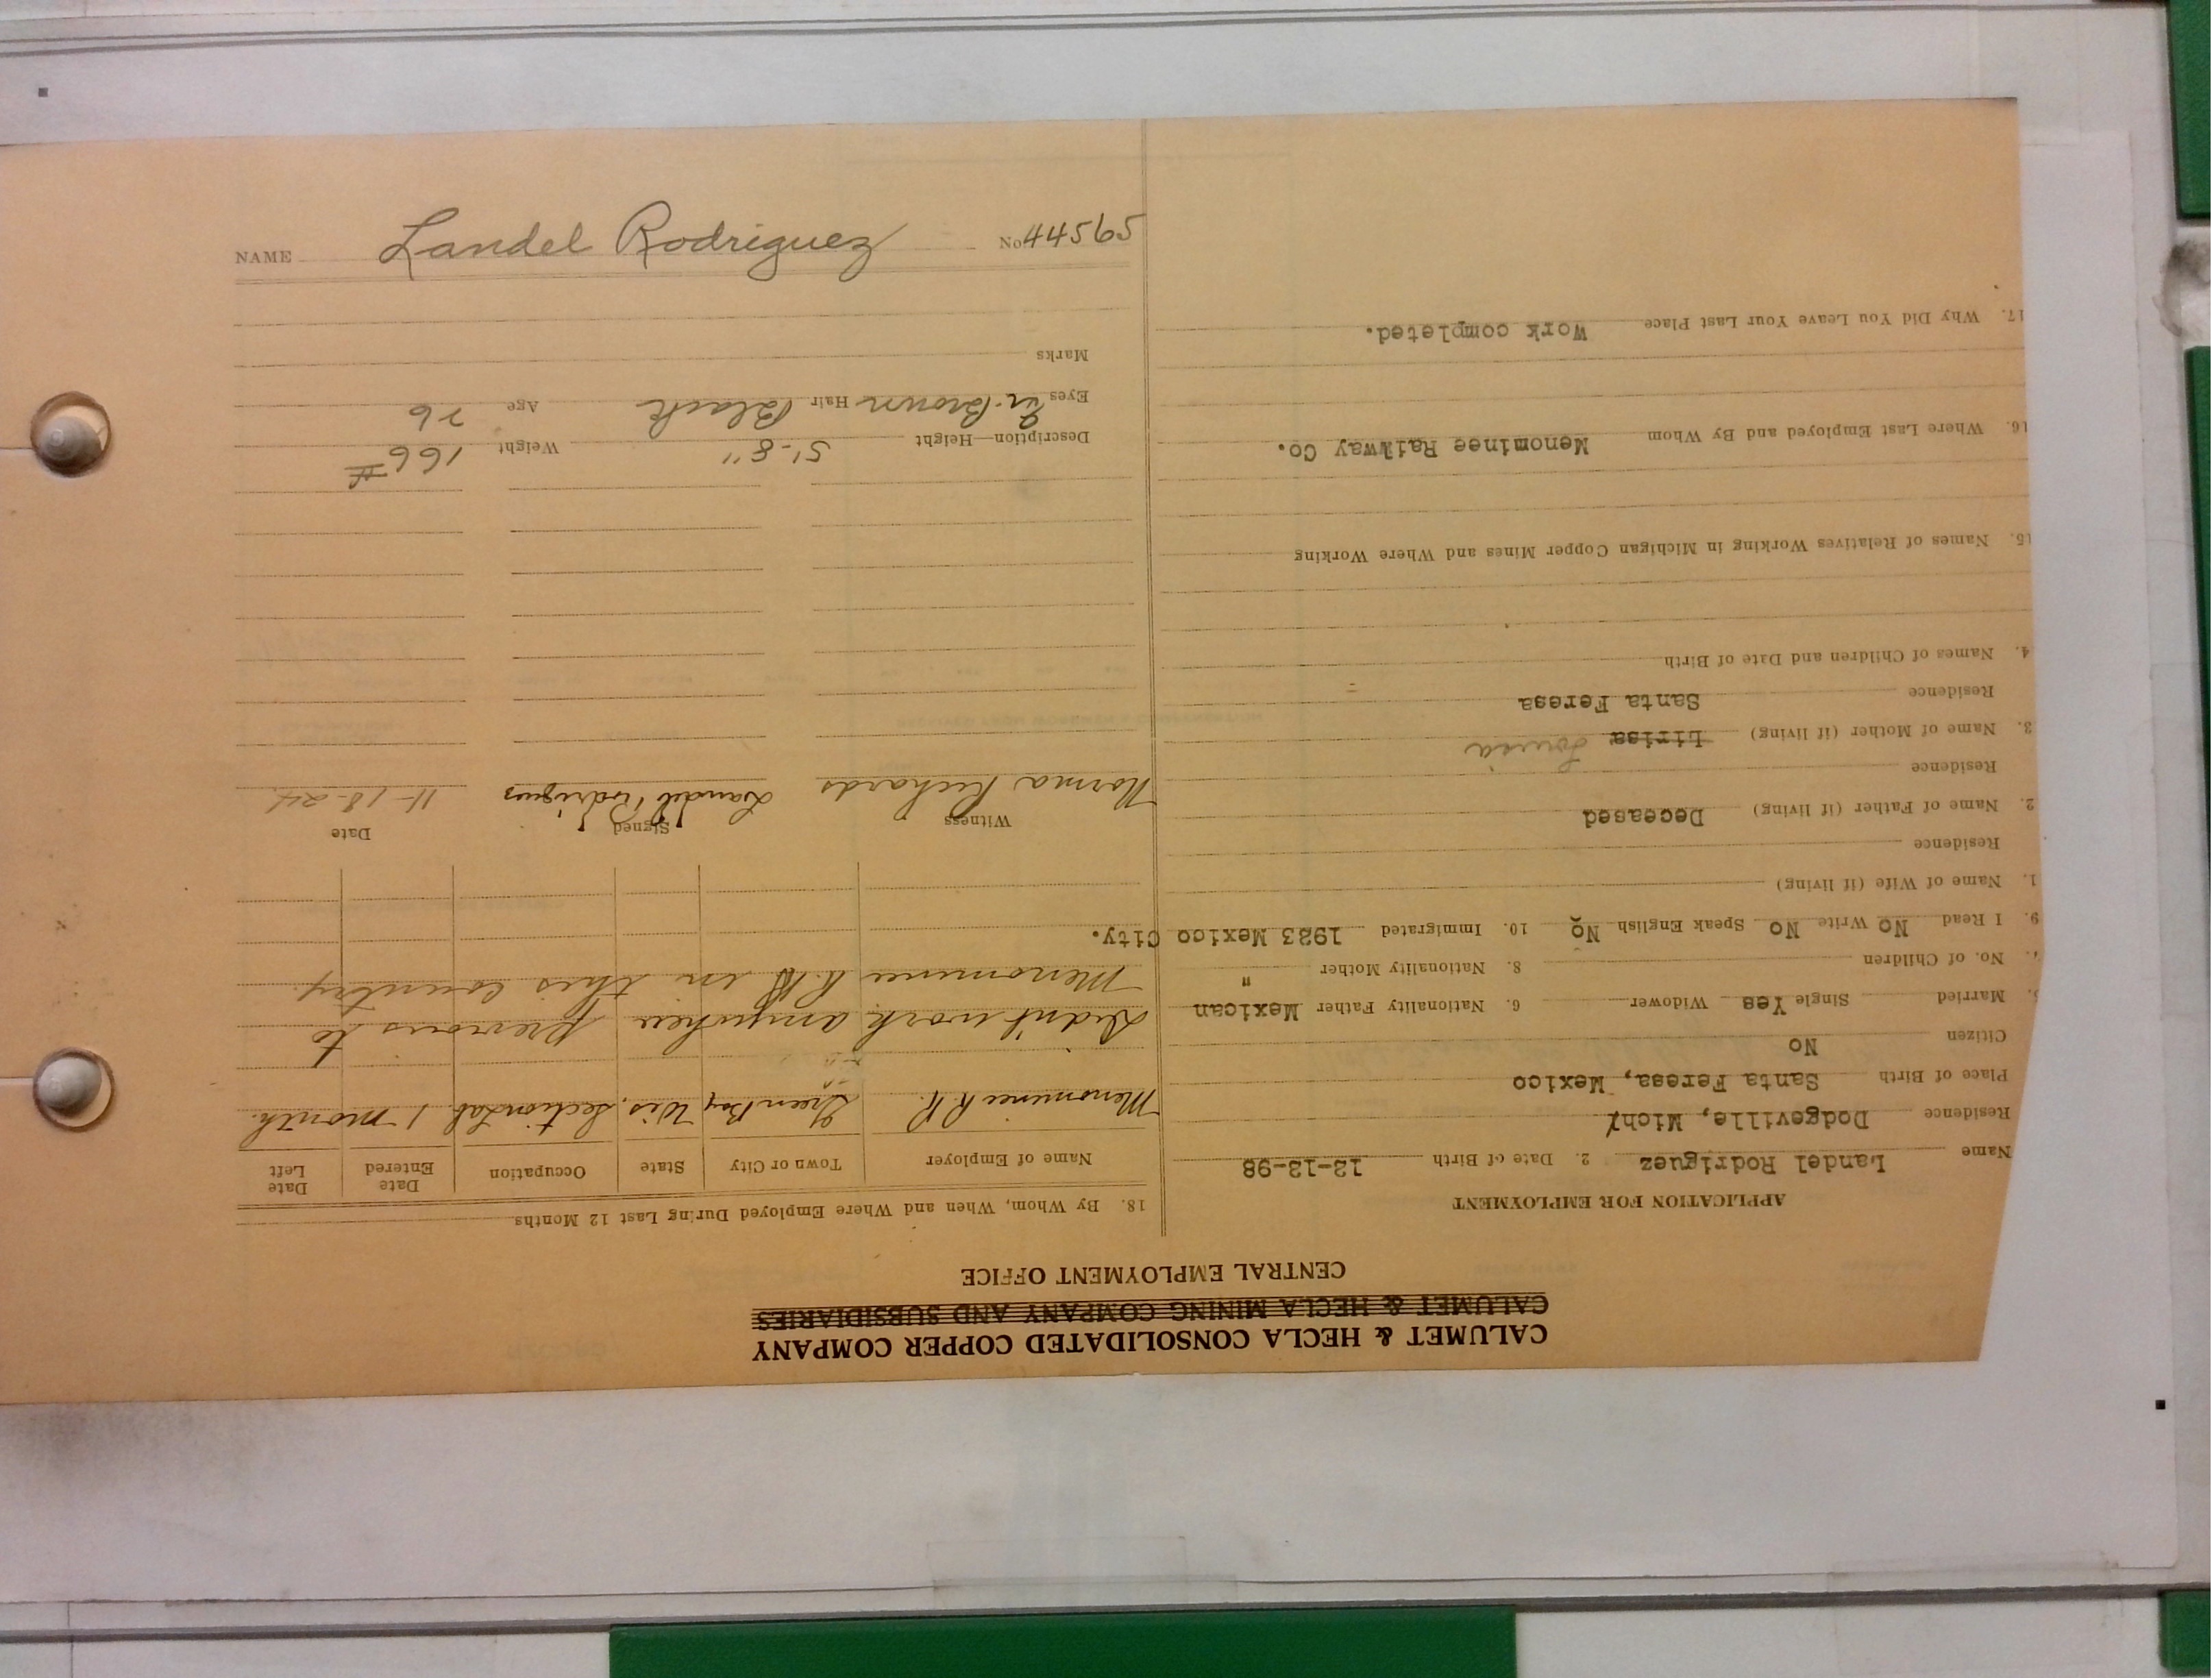 CALUMET & HECLA CONSOLIDATED COPPER COMPANY
CALUMET & HECLA MINING COMPANY AND SUBSIDIARIES
CENTRAL EMPLOYMENT OFFICE
APPLICATION FOR EMPLOYMENT
Name Landel Rodriguez 2. Date of Birth 12-12-98
Residence Dodgeville, Mich/
Place of Birth Santa Feresa, Mexico
Citizen No
5. Married Single Yes Widower 6. Nationality Father Mexican
7. No. of Children 8. Nationality Mother "
9. I Read No Write No Speak English No 10. Immigrated 1923 Mexico City.
1. Name of Wife (if living)
Residence
2. Name of Father (if living) Deceased
Residence
3. Name of Mother (if living) Lirisa Louisa
Residence Santa Feresa
4. Names of Children and Date of Birth
15. Names of Relatives Working in Michigan Copper Mines and Where Working
16. Where Last Employed and By Whom Menominee Railway Co.
17. Why Did You Leave Your Last Place Work completed.
18. By Whom, When and Where Employed During Last 12 Months
Name of Employer Town or City State Occupation Date Entered Date Left
Menominee R.R. Green Bay Wis. Section Lab. 1 month.
Didn't work anywhere previous to
Menominee R.R. in this country.
Witness Signed Date
Norma Richards Landel Rodrigues 11-18-24.
Description—Height 5'-8" Weight 166 #
Eyes Brown Hair Black Age 26
Marks
NAME Landel Rodriguez No 44565